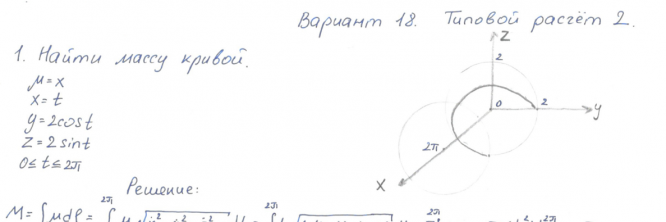 Вариант 18. Типовой расчёт 2.
1. Найти массу кривой.
μ=x
x=t
y=2cost
z=2sint
0≤t≤2π
z
2
0
2
y
2π
x
Решение:
M=∫μdl=